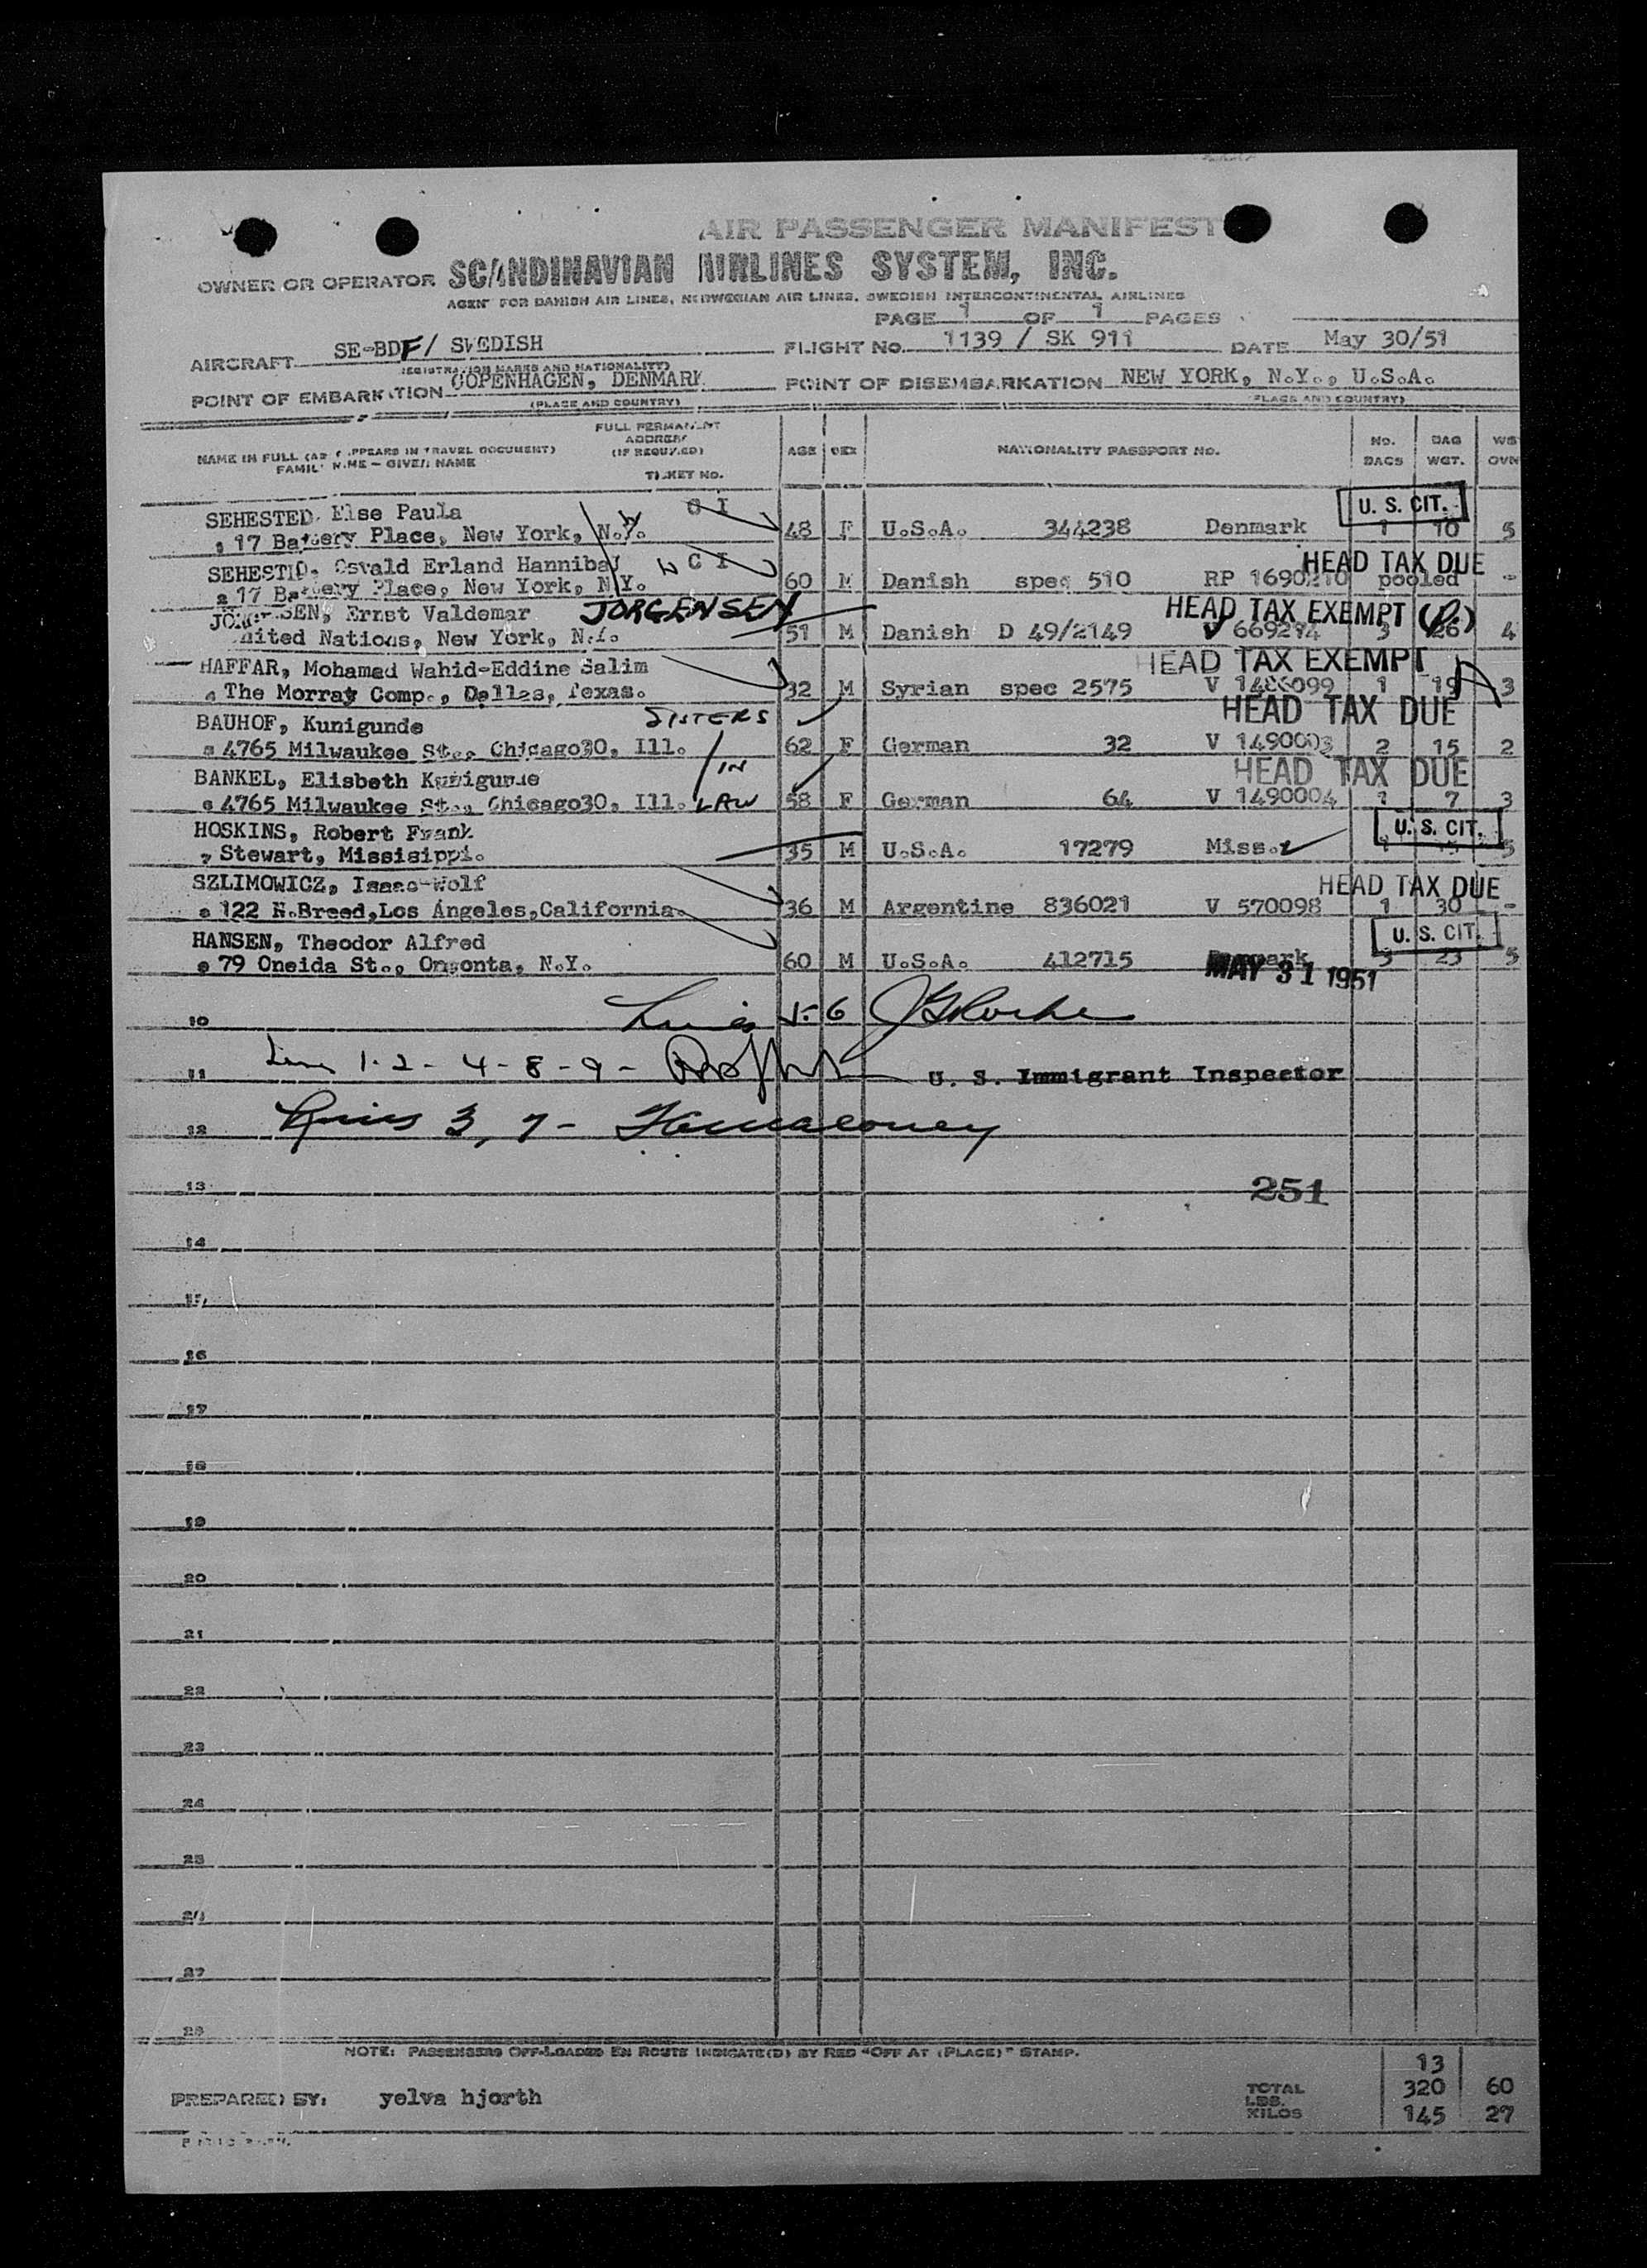 AIR PASSENGER MANIFEST
OWNER OR OPERATOR SCANDINAVIAN AIRLINES SYSTEM, INC.
AGENT FOR DANISH AIR LINES, NORWEGIAN AIR LINES, SWEDISH INTERCONTINENTAL AIRLINES
PAGE 1 OF 1 PAGES
AIRCRAFT SE-BDF/ SWEDISH FLIGHT NO. 1139 / SK 911 DATE May 30/51
(REGISTRATION MARKS AND NATIONALITY)
POINT OF EMBARKATION COPENHAGEN, DENMARK POINT OF DISEMBARKATION NEW YORK, N.Y., U.S.A.
(PLACE AND COUNTRY) (PLACE AND COUNTRY)
NAME IN FULL (AS APPEARS IN TRAVEL DOCUMENT) FAMILY NAME - GIVEN NAME FULL PERMANENT ADDRESS (IF REQUIRED) TICKET NO. AGE SEX NATIONALITY PASSPORT NO. NO. BAGS BAG WGT.
SEHESTED, Else Paula C I U. S. CIT.
17 Battery Place, New York, N.Y. 48 F U.S.A. 344238 Denmark 1 10 5
SEHESTED, Osvald Erland Hannibal C I HEAD TAX DUE
17 Battery Place, New York, N.Y. 60 M Danish spec 510 RP 1690210 pooled -
JÖRGENSEN, Ernst Valdemar JORGENSEN HEAD TAX EXEMPT
United Nations, New York, N.Y. 51 M Danish D 49/2149 V 669294 3 26 4
HAFFAR, Mohamed Wahid-Eddine Salim HEAD TAX EXEMPT
The Morray Comp., Dallas, Texas. 32 M Syrian spec 2575 V 1486099 1 19 3
BAUHOF, Kunigunde SISTERS HEAD TAX DUE
4765 Milwaukee St., Chicago30, Ill. 62 F German 32 V 1490003 2 15 2
BANKEL, Elisbeth Kunigunde IN HEAD TAX DUE
4765 Milwaukee St., Chicago30, Ill. LAW 58 F German 64 V 1490004 1 7 3
HOSKINS, Robert Frank U. S. CIT.
Stewart, Missisippi. 35 M U.S.A. 17279 Miss. 1 15 5
SZLIMOWICZ, Isaac-Wolf HEAD TAX DUE
122 N.Breed,Los Angeles,California. 36 M Argentine 836021 V 570098 1 30 -
HANSEN, Theodor Alfred U. S. CIT.
79 Oneida St., Oneonta, N.Y. 60 M U.S.A. 412715 Denmark 3 23 5
MAY 31 1951
10 Lines 5-6
11 Lines 1-2-4-8-9- U. S. Immigrant Inspector
12 Lines 3, 7-
13 251
14
15
16
17
18
19
20
21
22
23
24
25
26
27
28
NOTE: PASSENGERS OFF-LOADED EN ROUTE INDICATE(D) BY RED "OFF AT (PLACE)" STAMP.
13
PREPARED BY: yelva hjorth TOTAL LBS. 320 60
KILOS 145 27